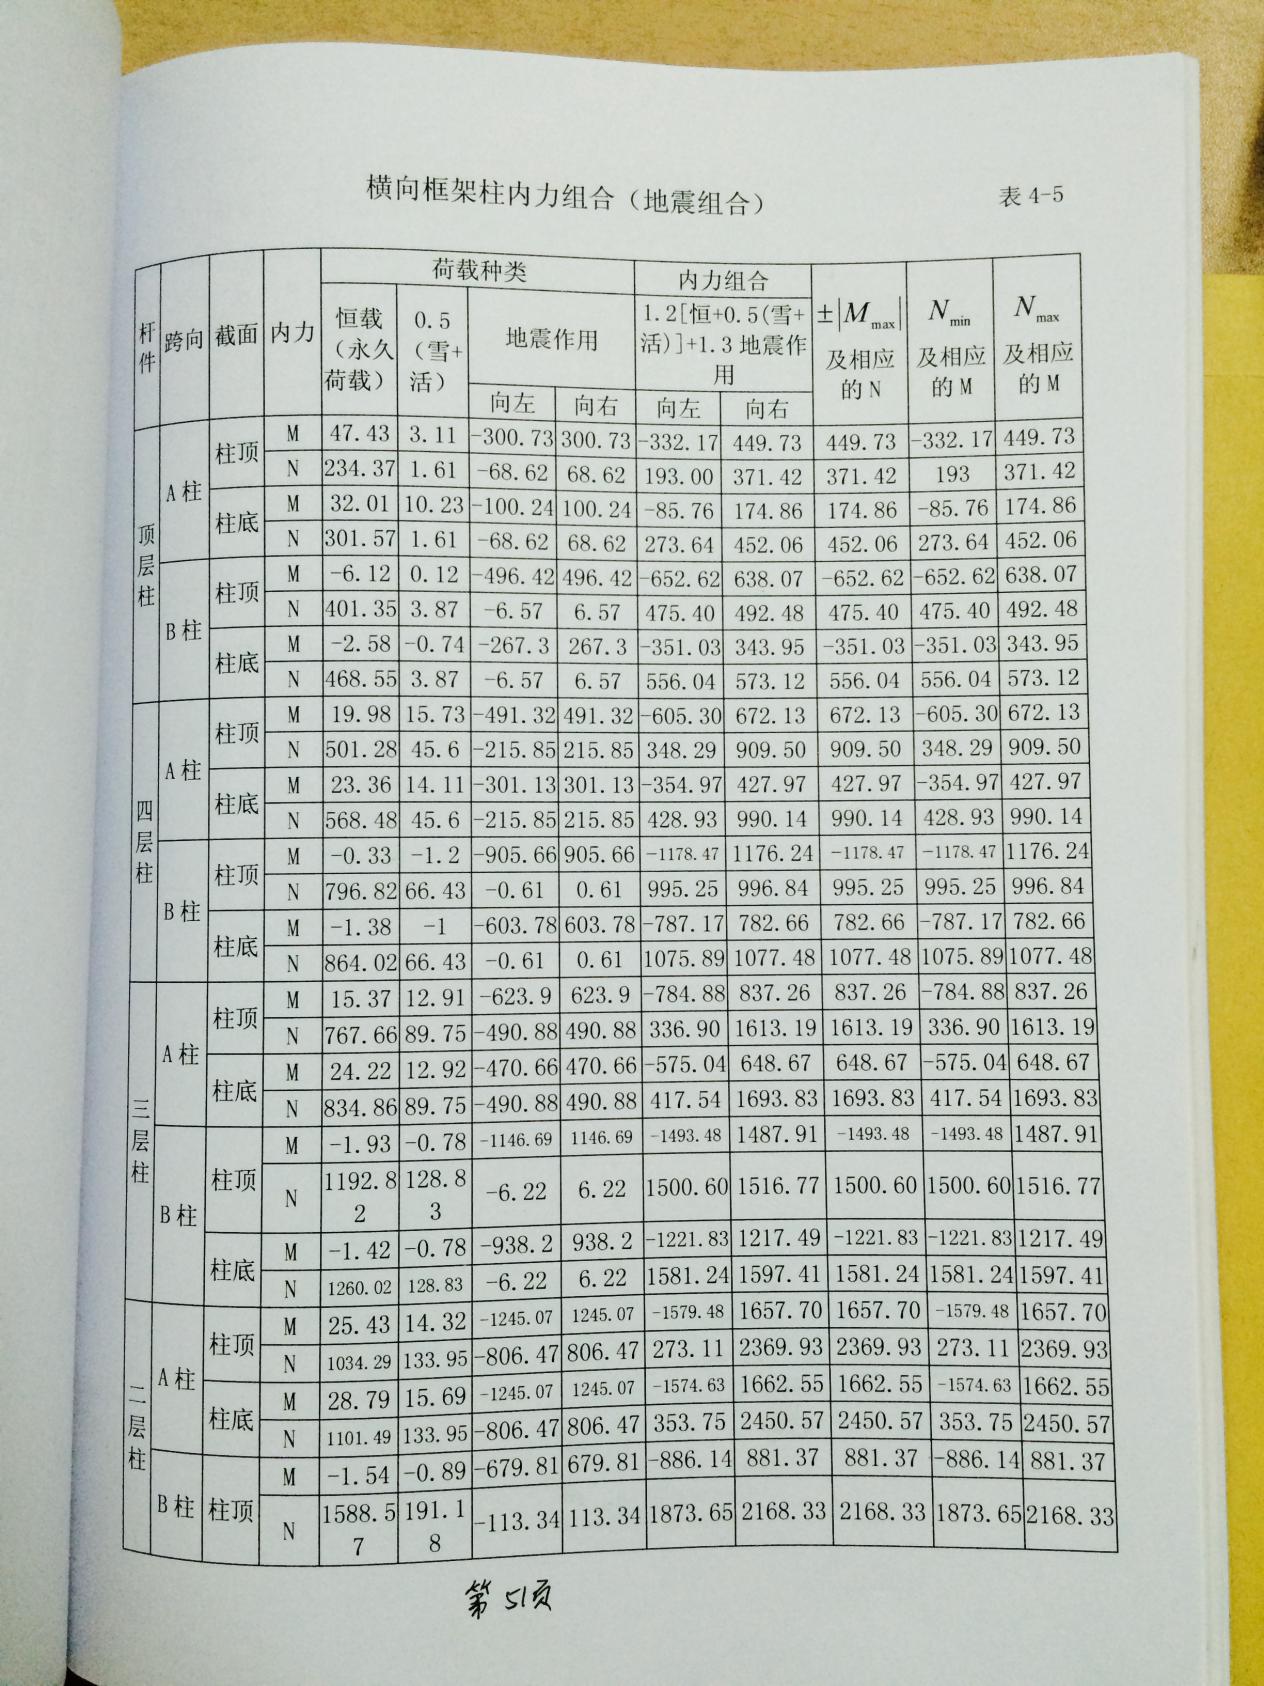 横向框架柱内力组合（地震组合） 表 4-5
杆件 跨向 截面 内力 荷载种类 内力组合 ±|Mmax|及相应的 N Nmin及相应的 M Nmax及相应的 M
恒载（永久荷载） 0.5（雪+活） 地震作用 1.2[恒+0.5(雪+活)]+1.3 地震作用
向左 向右 向左 向右
顶层柱 A 柱 柱顶 M 47.43 3.11 -300.73 300.73 -332.17 449.73 449.73 -332.17 449.73
N 234.37 1.61 -68.62 68.62 193.00 371.42 371.42 193 371.42
柱底 M 32.01 10.23 -100.24 100.24 -85.76 174.86 174.86 -85.76 174.86
N 301.57 1.61 -68.62 68.62 273.64 452.06 452.06 273.64 452.06
B 柱 柱顶 M -6.12 0.12 -496.42 496.42 -652.62 638.07 -652.62 -652.62 638.07
N 401.35 3.87 -6.57 6.57 475.40 492.48 475.40 475.40 492.48
柱底 M -2.58 -0.74 -267.3 267.3 -351.03 343.95 -351.03 -351.03 343.95
N 468.55 3.87 -6.57 6.57 556.04 573.12 556.04 556.04 573.12
四层柱 A 柱 柱顶 M 19.98 15.73 -491.32 491.32 -605.30 672.13 672.13 -605.30 672.13
N 501.28 45.6 -215.85 215.85 348.29 909.50 909.50 348.29 909.50
柱底 M 23.36 14.11 -301.13 301.13 -354.97 427.97 427.97 -354.97 427.97
N 568.48 45.6 -215.85 215.85 428.93 990.14 990.14 428.93 990.14
B 柱 柱顶 M -0.33 -1.2 -905.66 905.66 -1178.47 1176.24 -1178.47 -1178.47 1176.24
N 796.82 66.43 -0.61 0.61 995.25 996.84 995.25 995.25 996.84
柱底 M -1.38 -1 -603.78 603.78 -787.17 782.66 782.66 -787.17 782.66
N 864.02 66.43 -0.61 0.61 1075.89 1077.48 1077.48 1075.89 1077.48
三层柱 A 柱 柱顶 M 15.37 12.91 -623.9 623.9 -784.88 837.26 837.26 -784.88 837.26
N 767.66 89.75 -490.88 490.88 336.90 1613.19 1613.19 336.90 1613.19
柱底 M 24.22 12.92 -470.66 470.66 -575.04 648.67 648.67 -575.04 648.67
N 834.86 89.75 -490.88 490.88 417.54 1693.83 1693.83 417.54 1693.83
B 柱 柱顶 M -1.93 -0.78 -1146.69 1146.69 -1493.48 1487.91 -1493.48 -1493.48 1487.91
N 1192.82 128.83 -6.22 6.22 1500.60 1516.77 1500.60 1500.60 1516.77
柱底 M -1.42 -0.78 -938.2 938.2 -1221.83 1217.49 -1221.83 -1221.83 1217.49
N 1260.02 128.83 -6.22 6.22 1581.24 1597.41 1581.24 1581.24 1597.41
二层柱 A 柱 柱顶 M 25.43 14.32 -1245.07 1245.07 -1579.48 1657.70 1657.70 -1579.48 1657.70
N 1034.29 133.95 -806.47 806.47 273.11 2369.93 2369.93 273.11 2369.93
柱底 M 28.79 15.69 -1245.07 1245.07 -1574.63 1662.55 1662.55 -1574.63 1662.55
N 1101.49 133.95 -806.47 806.47 353.75 2450.57 2450.57 353.75 2450.57
B 柱 柱顶 M -1.54 -0.89 -679.81 679.81 -886.14 881.37 881.37 -886.14 881.37
N 1588.57 191.18 -113.34 113.34 1873.65 2168.33 2168.33 1873.65 2168.33
第 51页